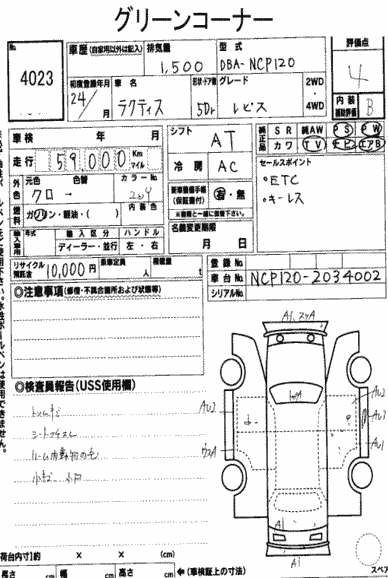 グリーンコーナー
No.
4023
車歴 (自家用以外は記入)
排気量
1,500
型式
DBA-NCP120
評価点
4
初度登録年月
24/月
車名
ラクティス
形状・ドア数
5Dr
グレード
レピス
2WD
4WD
内装
補助評価
B
車検 年 月
走行 59,000 Km
マイル
シフト
AT
純正品
SR 純AW PS PW
カワ TV ナビ エアB
外色
元色 色替 カラーNo.
クロ → 209
冷房
AC
セールスポイント
・ETC
・キーレス
燃料
ガソリン・軽油・( )
内装色
新車整備手帳
(保証書付)
有・無
※書類と一緒に御審下さい。
輸入車
年式 輸入区分 ハンドル
ディーラー・並行 左・右
名義変更期限
月 日
リサイクル
預託金
10,000円
乗車定員
人
積載量
t
登録No.
車台No. NCP120-2034002
シリアルNo.
◎注意事項 (修復・不具合箇所および状態等)
◎検査員報告(USS使用欄)
シートコゲスレ
小キズ 小凹
A1
AU2
AU2
AU1
A1
A1
荷台内寸)約 x x (cm)
長さ cm 幅 cm 高さ cm ←(車検証上の寸法)
スペア